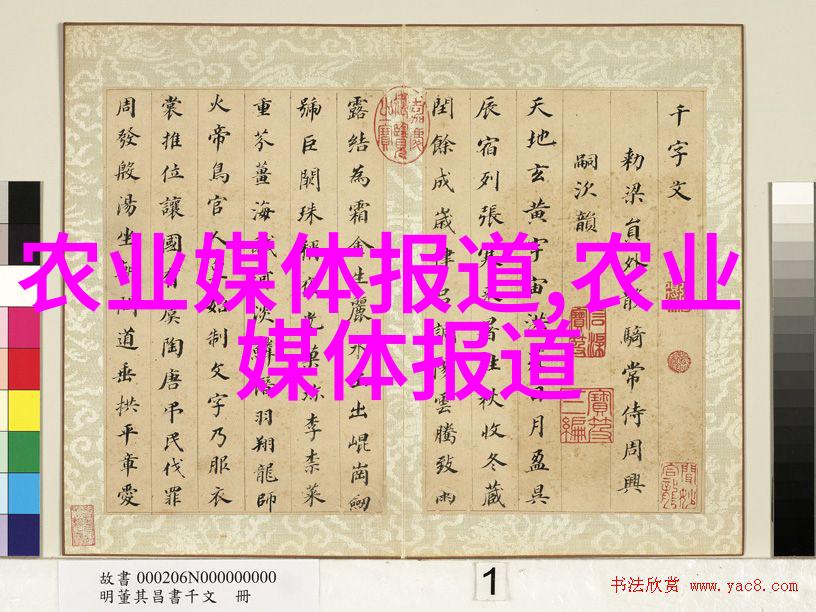 千字文
勅梁員外散騎常侍周興
嗣次韻
天地玄黃宇宙洪日月盈昃
辰宿列張寒来暑往秋收冬藏
閏餘成歲律呂調陽雲騰致雨
露結為霜金生麗水出崐崗劒
號巨闕珠稱夜光菓珍李柰菜
重芥薑海鹹河淡鱗潛羽翔龍師
火帝鳥官人皇始制文字乃服衣
裳推位讓國有虞陶唐弔民伐罪
周發殷湯坐問道垂拱平章愛
农业媒体报道,农业
媒体报道
故書 000206N000000000
明董其昌書千文 冊
1
书法欣赏 www.yac8.com